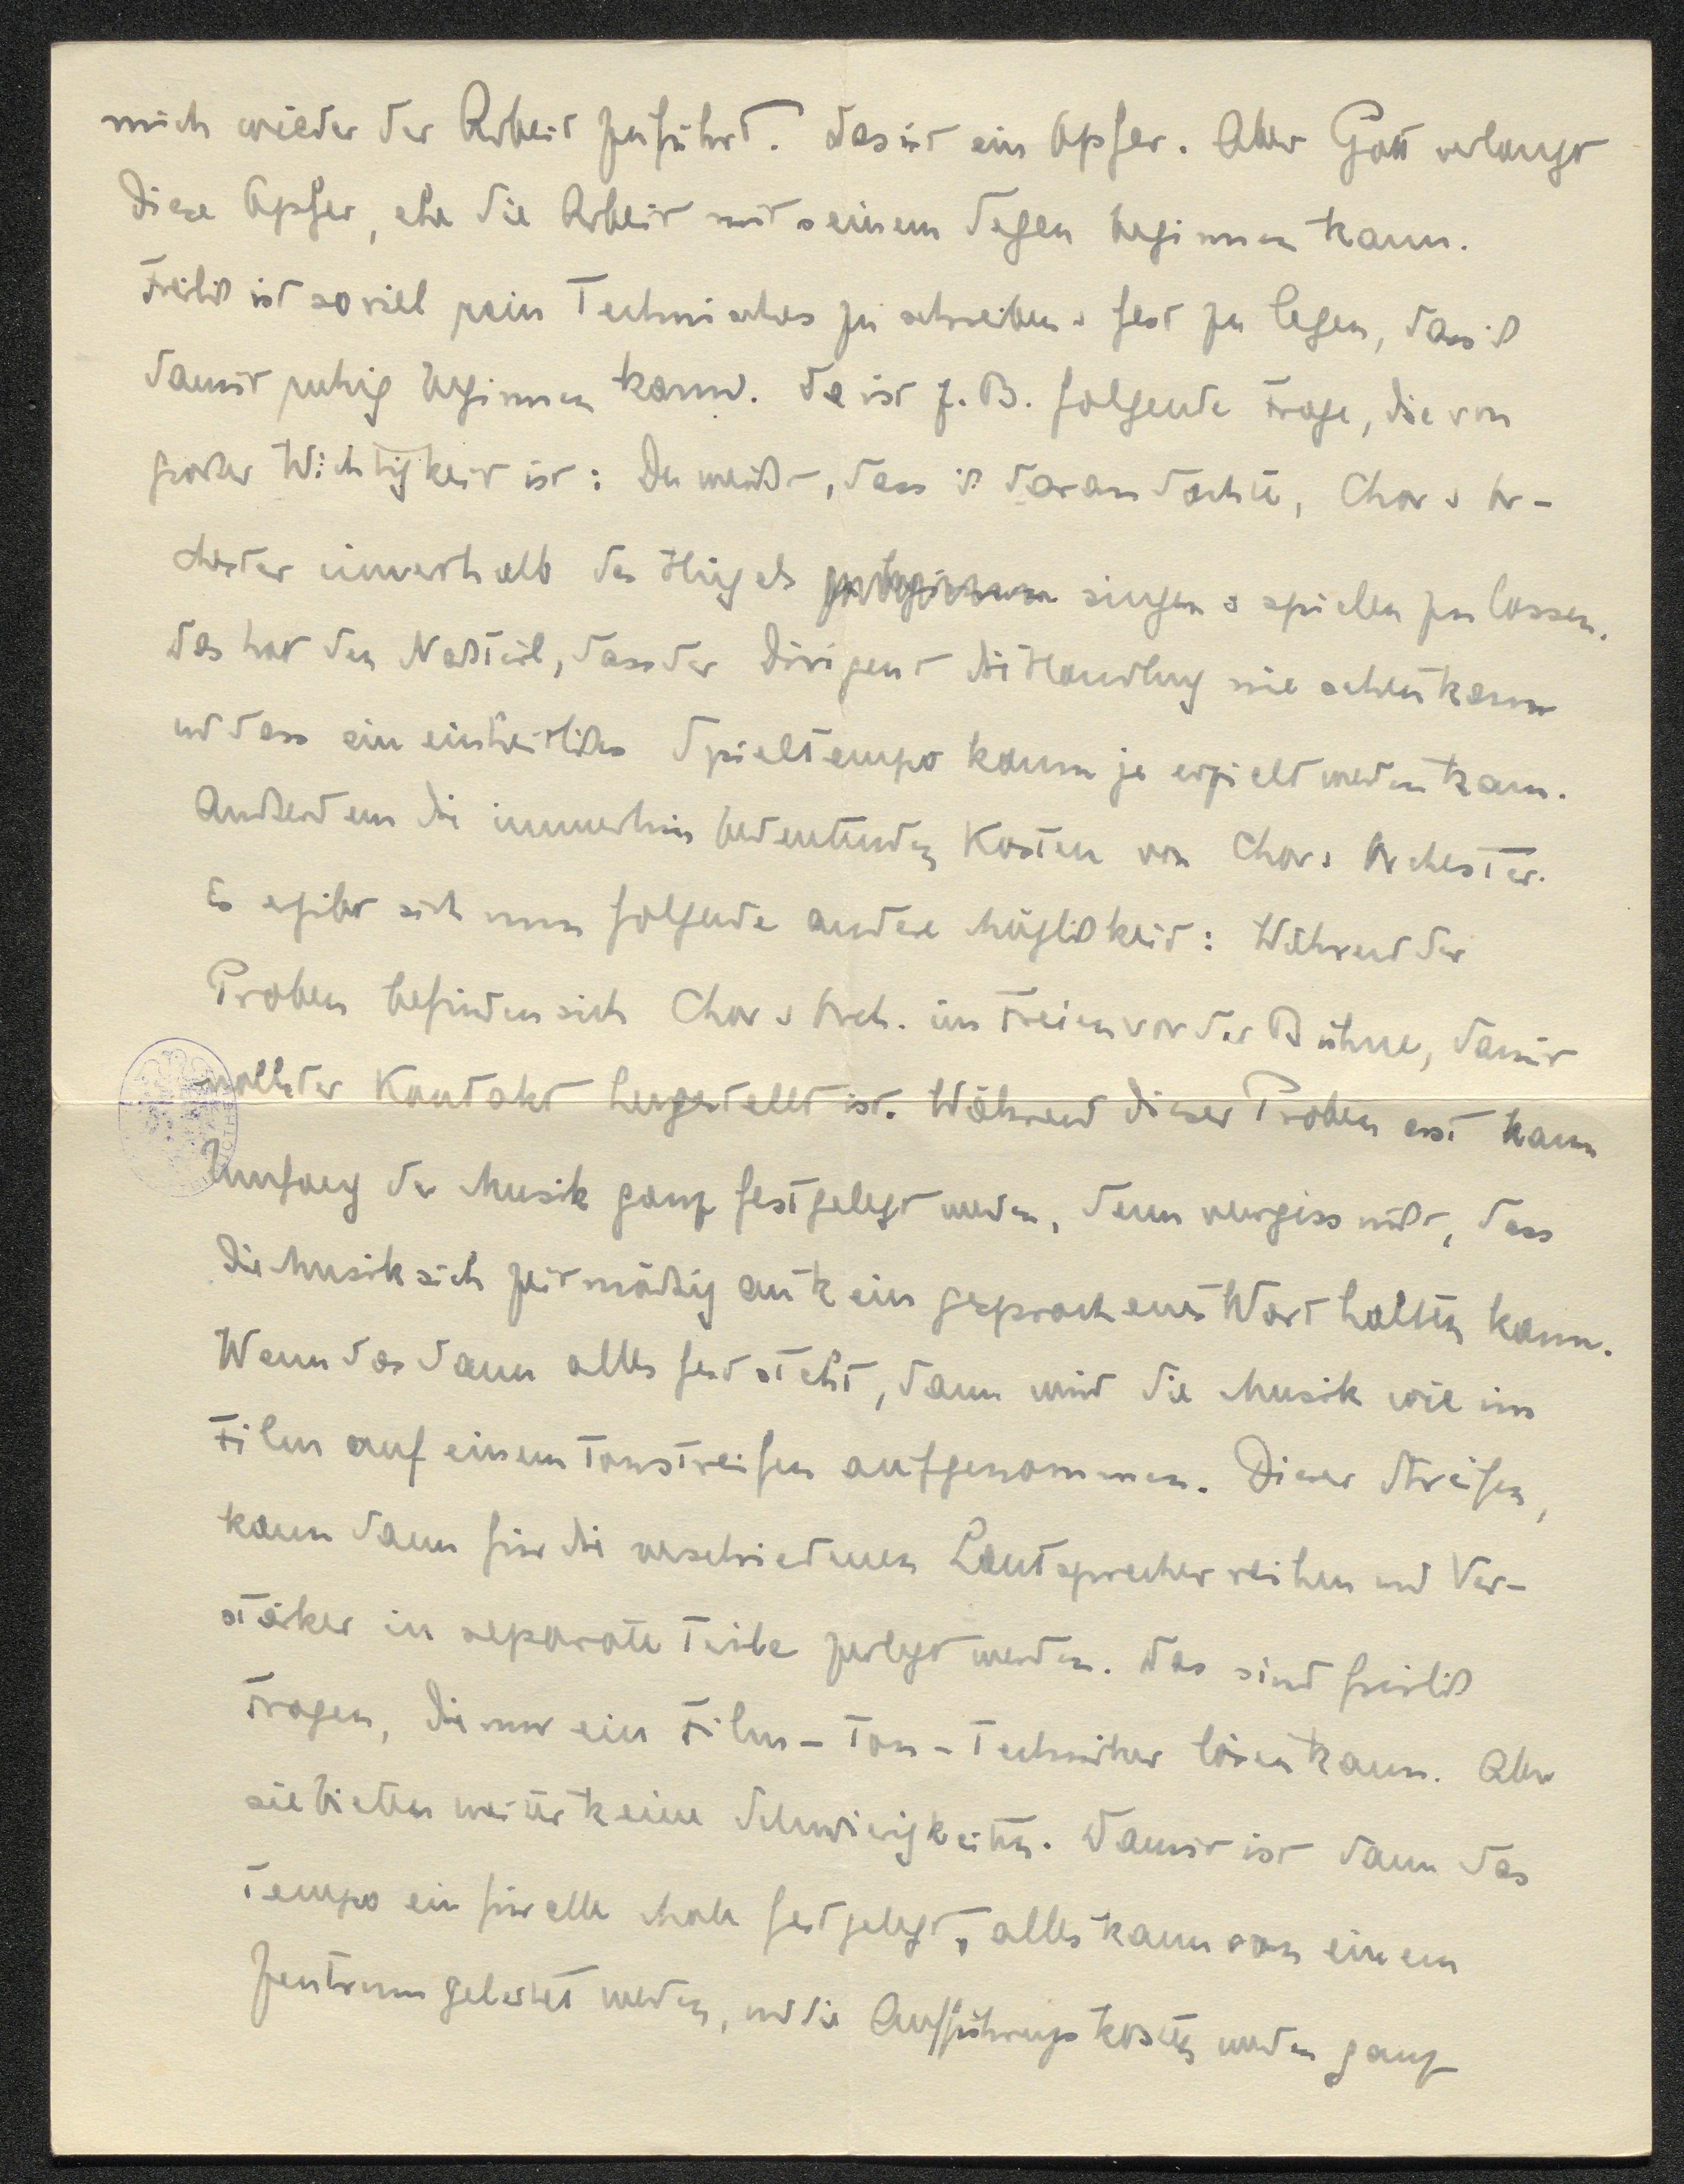 mich wieder der Arbeit zuführt. Das ist ein Opfer. Aber Gott verlangt
diese Opfer, ehe die Arbeit mit seinem Segen beginnen kann.
Freilich ist soviel rein Technisches zu schreiben u. fest zu legen, dass ich
damit ruhig beginnen kann. Da ist z. B. folgende Frage, die von
großer Wichtigkeit ist: Du weißt, dass ich daran dachte, Chor u. Or-
chester innerhalb des Hügels singen u. spielen zu lassen.
Das hat den Nachteil, dass der Dirigent die Handlung nie sehen kann
und dass ein einheitliches Spieltempo kaum je erzielt werden kann.
Außerdem die immerhin bedeutenden Kosten von Chor u. Orchester.
Es ergibt sich nun folgende andere Möglichkeit: Während der
Proben befinden sich Chor u. Orch. im Freien vor der Bühne, damit
vollster Kontakt hergestellt ist. Während dieser Proben erst kann
Umfang der Musik ganz festgelegt werden, denn vergiss nicht, dass
die Musik sich zeitmäßig an kein gesprochenes Wort halten kann.
Wenn das dann alles feststeht, dann wird die Musik wie im
Film auf einem Tonstreifen aufgenommen. Dieser Streifen,
kann dann für die verschiedenen Lautsprecherreihen und Ver-
stärker in separate Teile zerlegt werden. Das sind freilich
Fragen, die nur ein Film-Ton-Techniker lösen kann. Aber
sie bieten weiter keine Schwierigkeiten. Damit ist dann das
Tempo ein für alle Male festgelegt, alles kann von einem
Zentrum geleitet werden, und die Aufführungskosten werden ganz